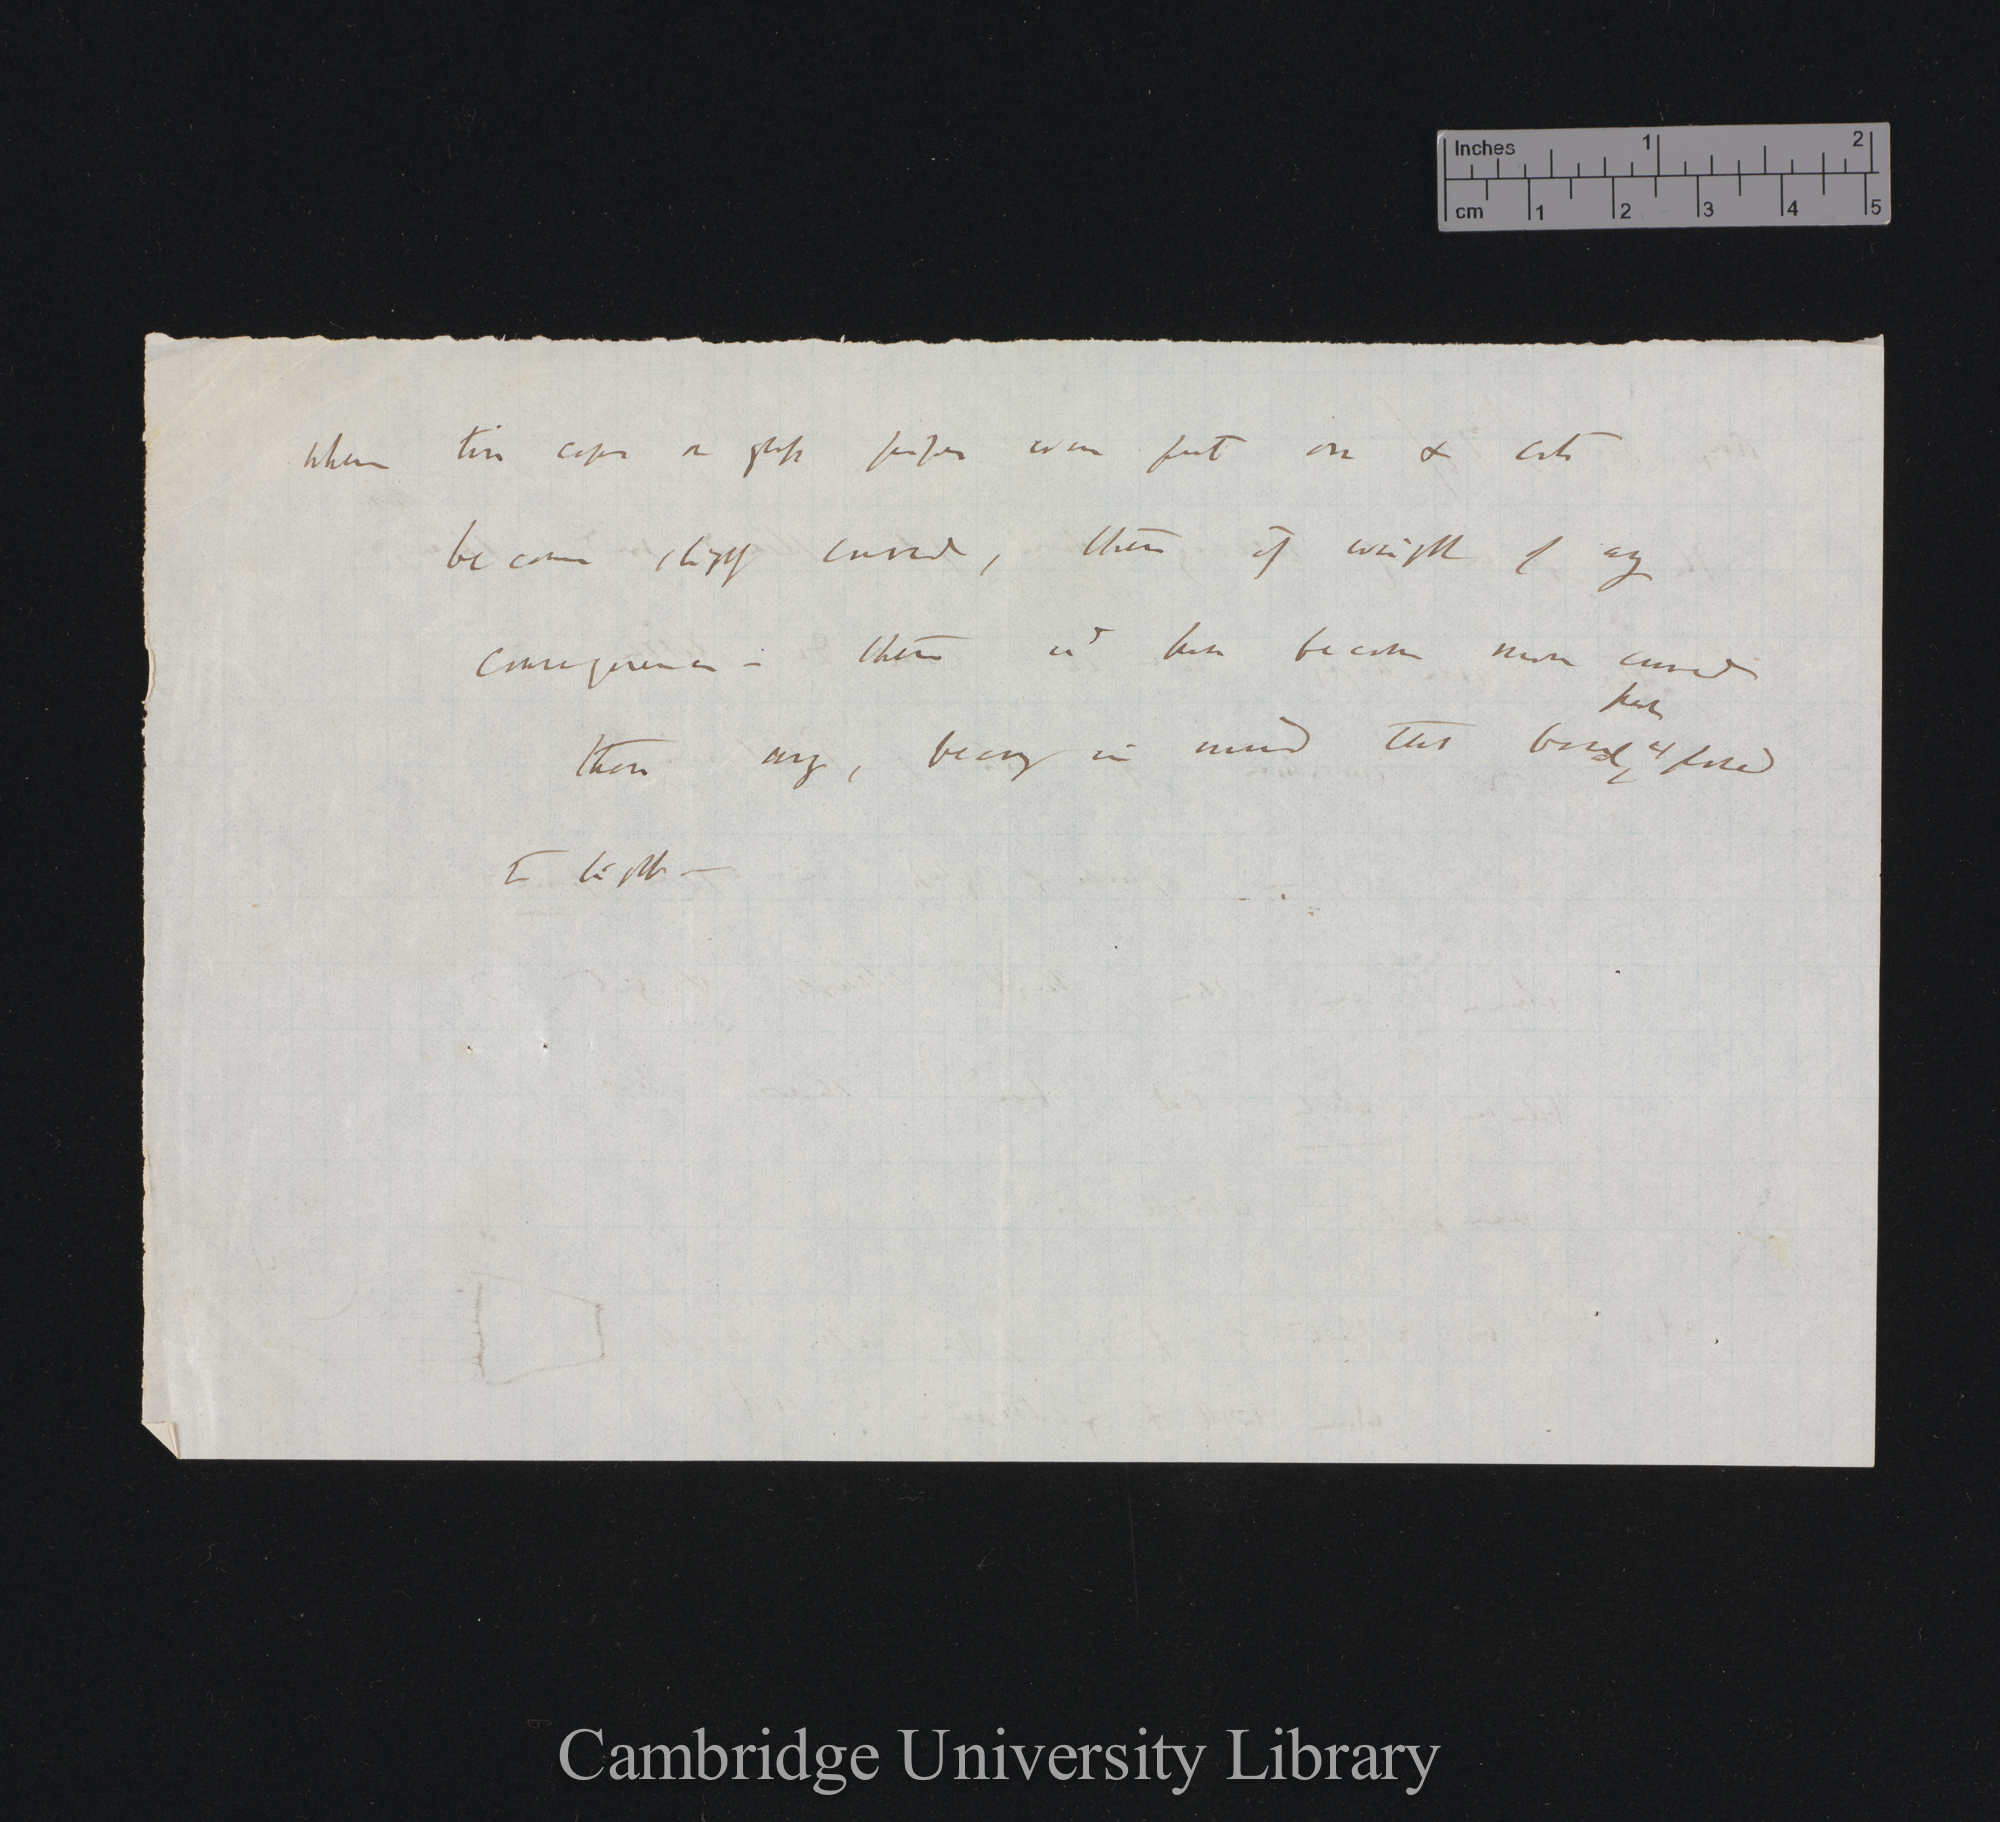 Inches 1 2
cm 1 2 3 4 5
when tin caps or glass pipes were put on & cots
become slightly curved, these if weight of any
consequence — these wd have become more curved
than any, bearing in mind that basal part exposed
to light —
Cambridge University Library